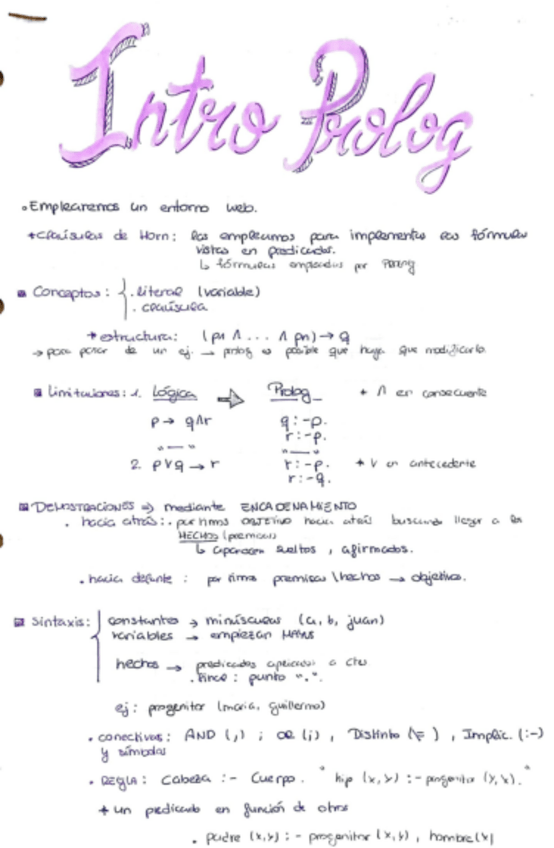 Intro Prolog
• Emplearemos un entorno web.
+ cláusulas de Horn: las empleamos para implementar las fórmulas
vistas en predicados.
↳ fórmulas empleadas por
Conceptos: { . literal (variable)
. cláusula
+ estructura: (p1 ∧ ... ∧ pn) → q
→ para pasar de un ej. → prolog es posible que haya que modificarlo.
Limitaciones: 1. Lógica ⇒ Prolog + ∧ en consecuente
p → q∧r q:-p.
r:-p.
"—" "—"
2. p∨q → r r:-p. + ∨ en antecedente
r:-q.
DEMOSTRACIONES ⇒ mediante ENCADENAMIENTO
. hacia atrás: . partimos OBJETIVO hacia atrás buscando llegar a los
HECHOS (premisas)
↳ aparecen sueltos, afirmados.
. hacia delante: partimos premisas \hechos → objetivo.
Sintaxis: constantes → minúsculas (a, b, juan)
variables → empiezan MAYUS
hechos → predicados aplicados a ctes
. Final: punto ".".
ej: progenitor (maria, guillermo)
. conectivas: AND (,) ; OR (;) , Distinto (\=) , Implic. (:-)
y símbolos
. REGLA: Cabeza :- Cuerpo. "hijo (x,y) :- progenitor (y,x)."
+ un predicado en función de otros
. padre (x,y) :- progenitor (x,y) , hombre(x)